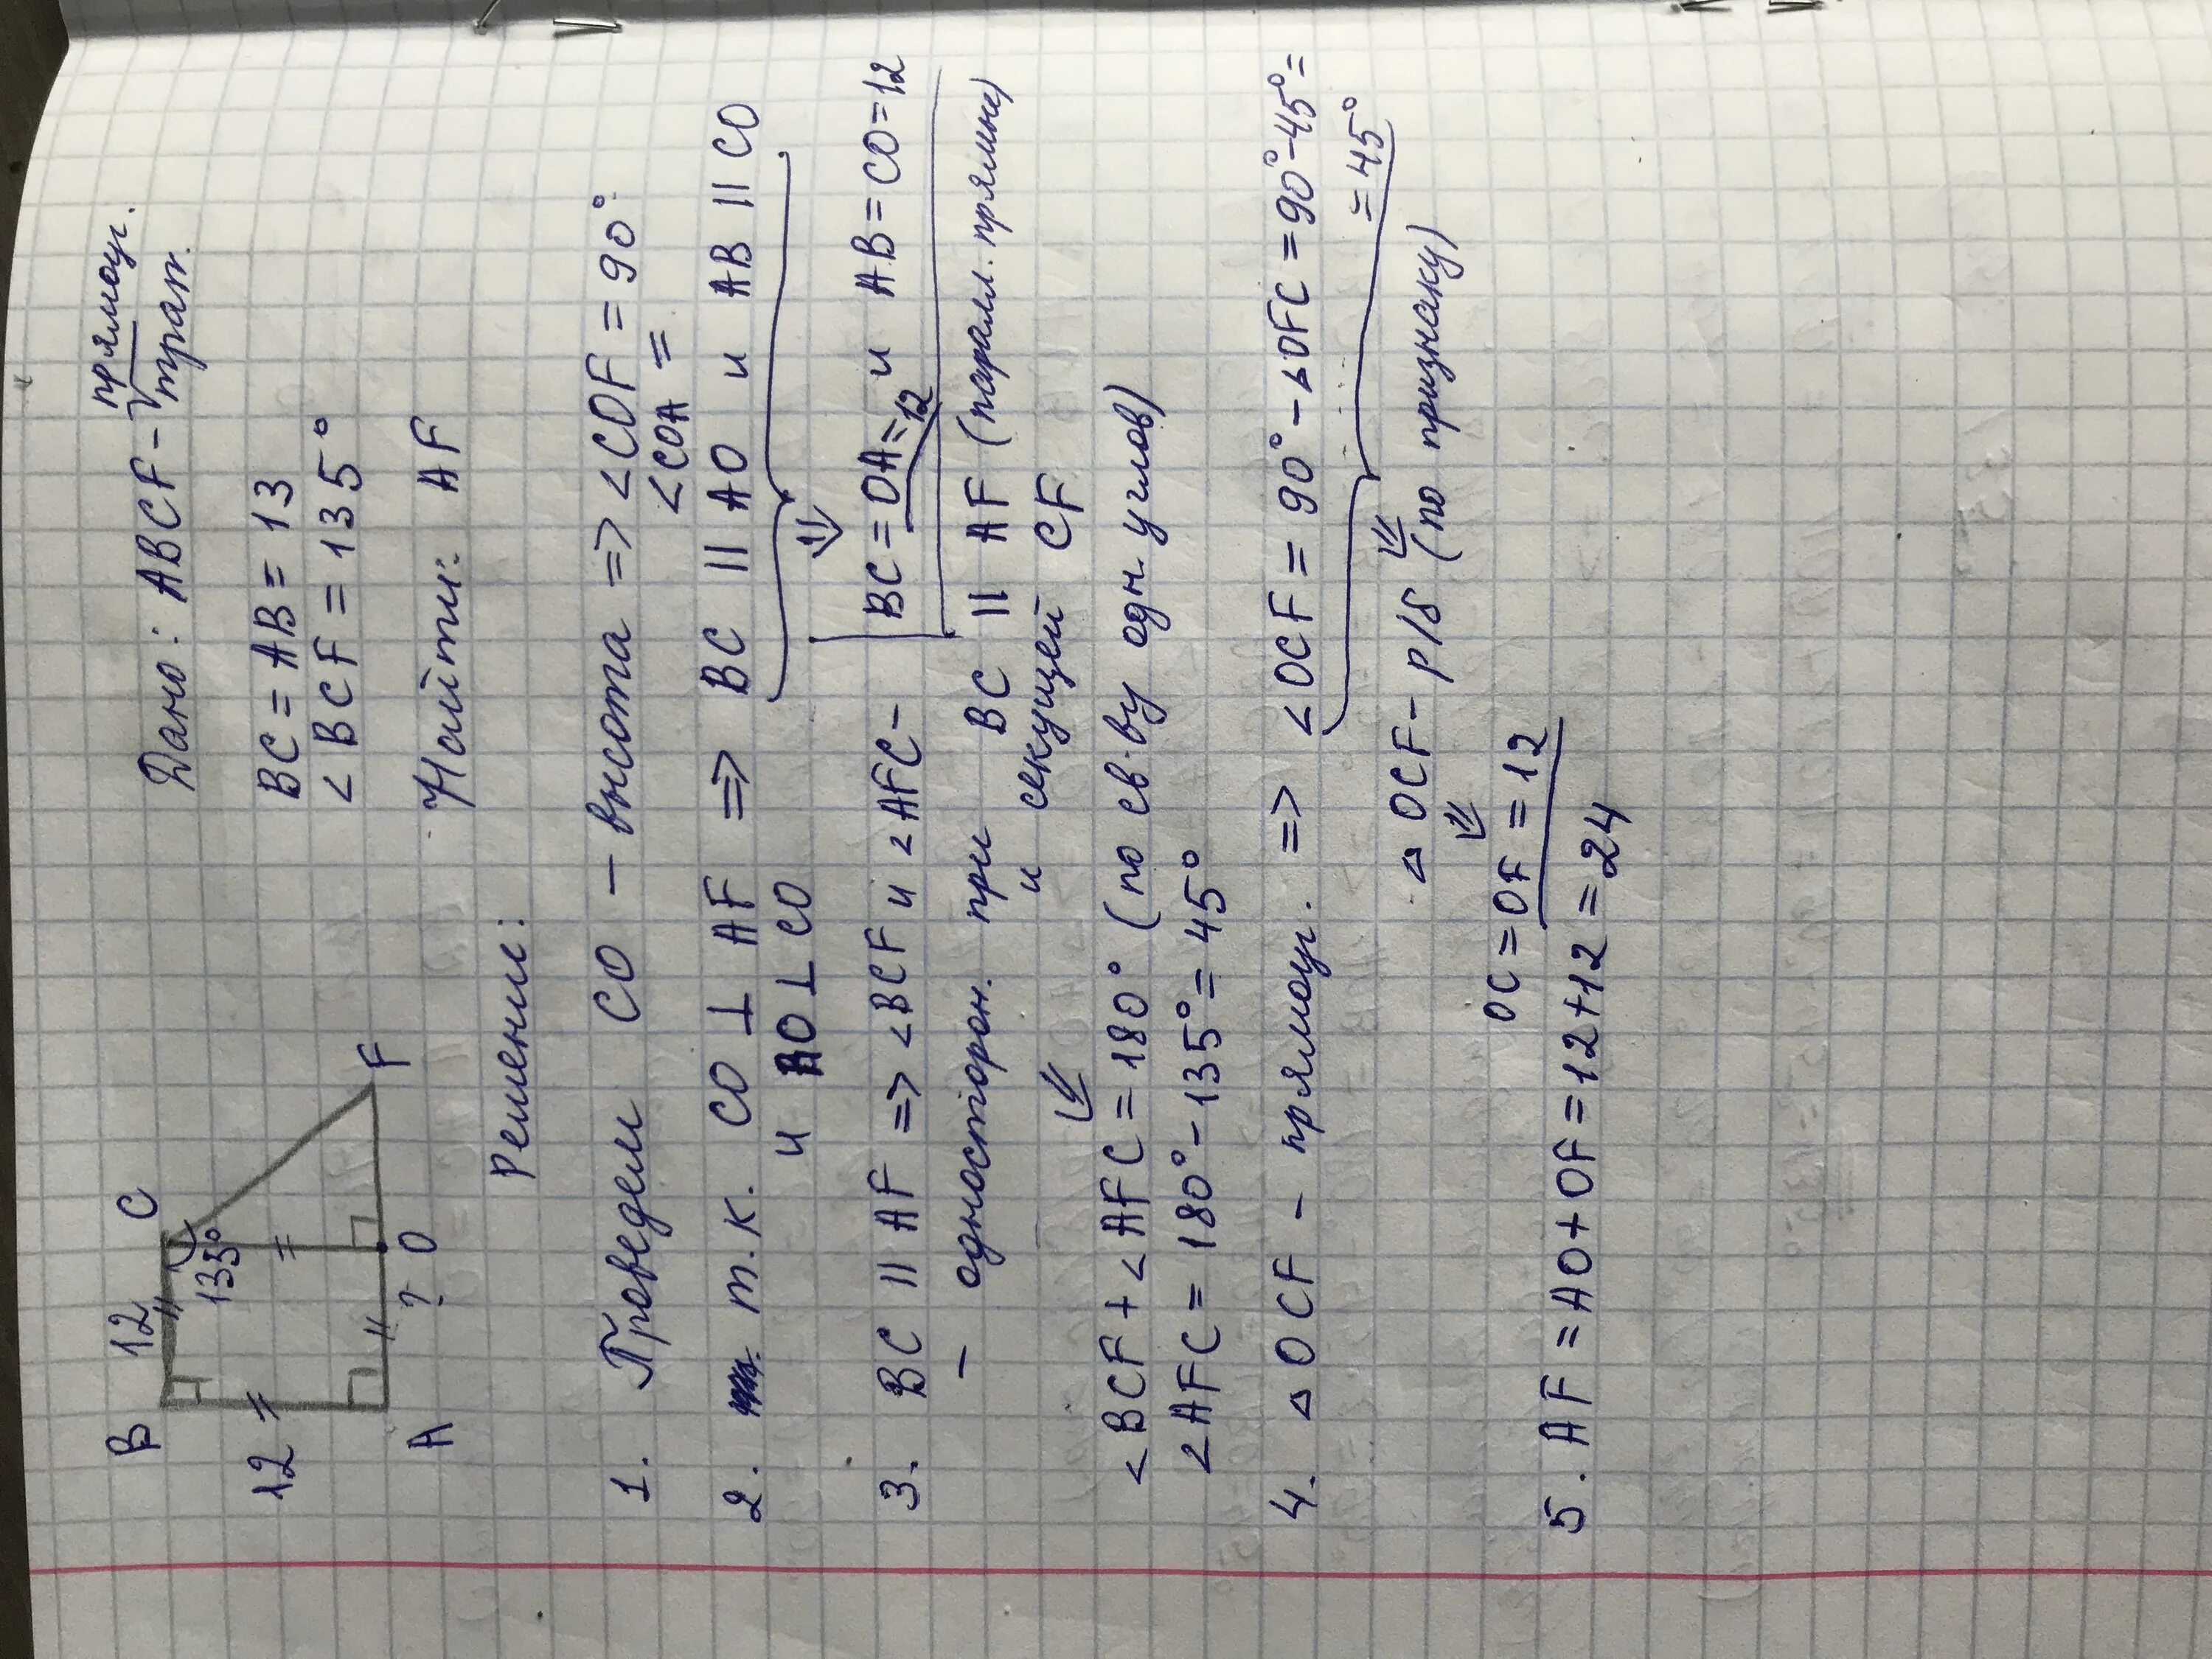 B 12 C
12
135°
A ? O F
Дано: ABCF - прямоуг. трап.
BC = AB = 13
<BCF = 135°
Найти: AF
Решение:
1. Проведем CO - высота => <COF = 90°
<COA =
2. т.к. CO ⊥ AF => BC || AO и AB || CO
и AO ⊥ CO
⇓
BC = OA = 12 и AB = CO = 12
3. BC || AF => <BCF и <AFC -
- односторон. при BC || AF (паралл. прямые)
и секущей CF
⇓
<BCF + <AFC = 180° (по св-ву одн. углов)
<AFC = 180° - 135° = 45°
4. △OCF - прямоуг. => <OCF = 90° - <OFC = 90° - 45° =
= 45°
⇓
△OCF - р/б (по признаку)
⇓
OC = OF = 12
5. AF = AO + OF = 12 + 12 = 24